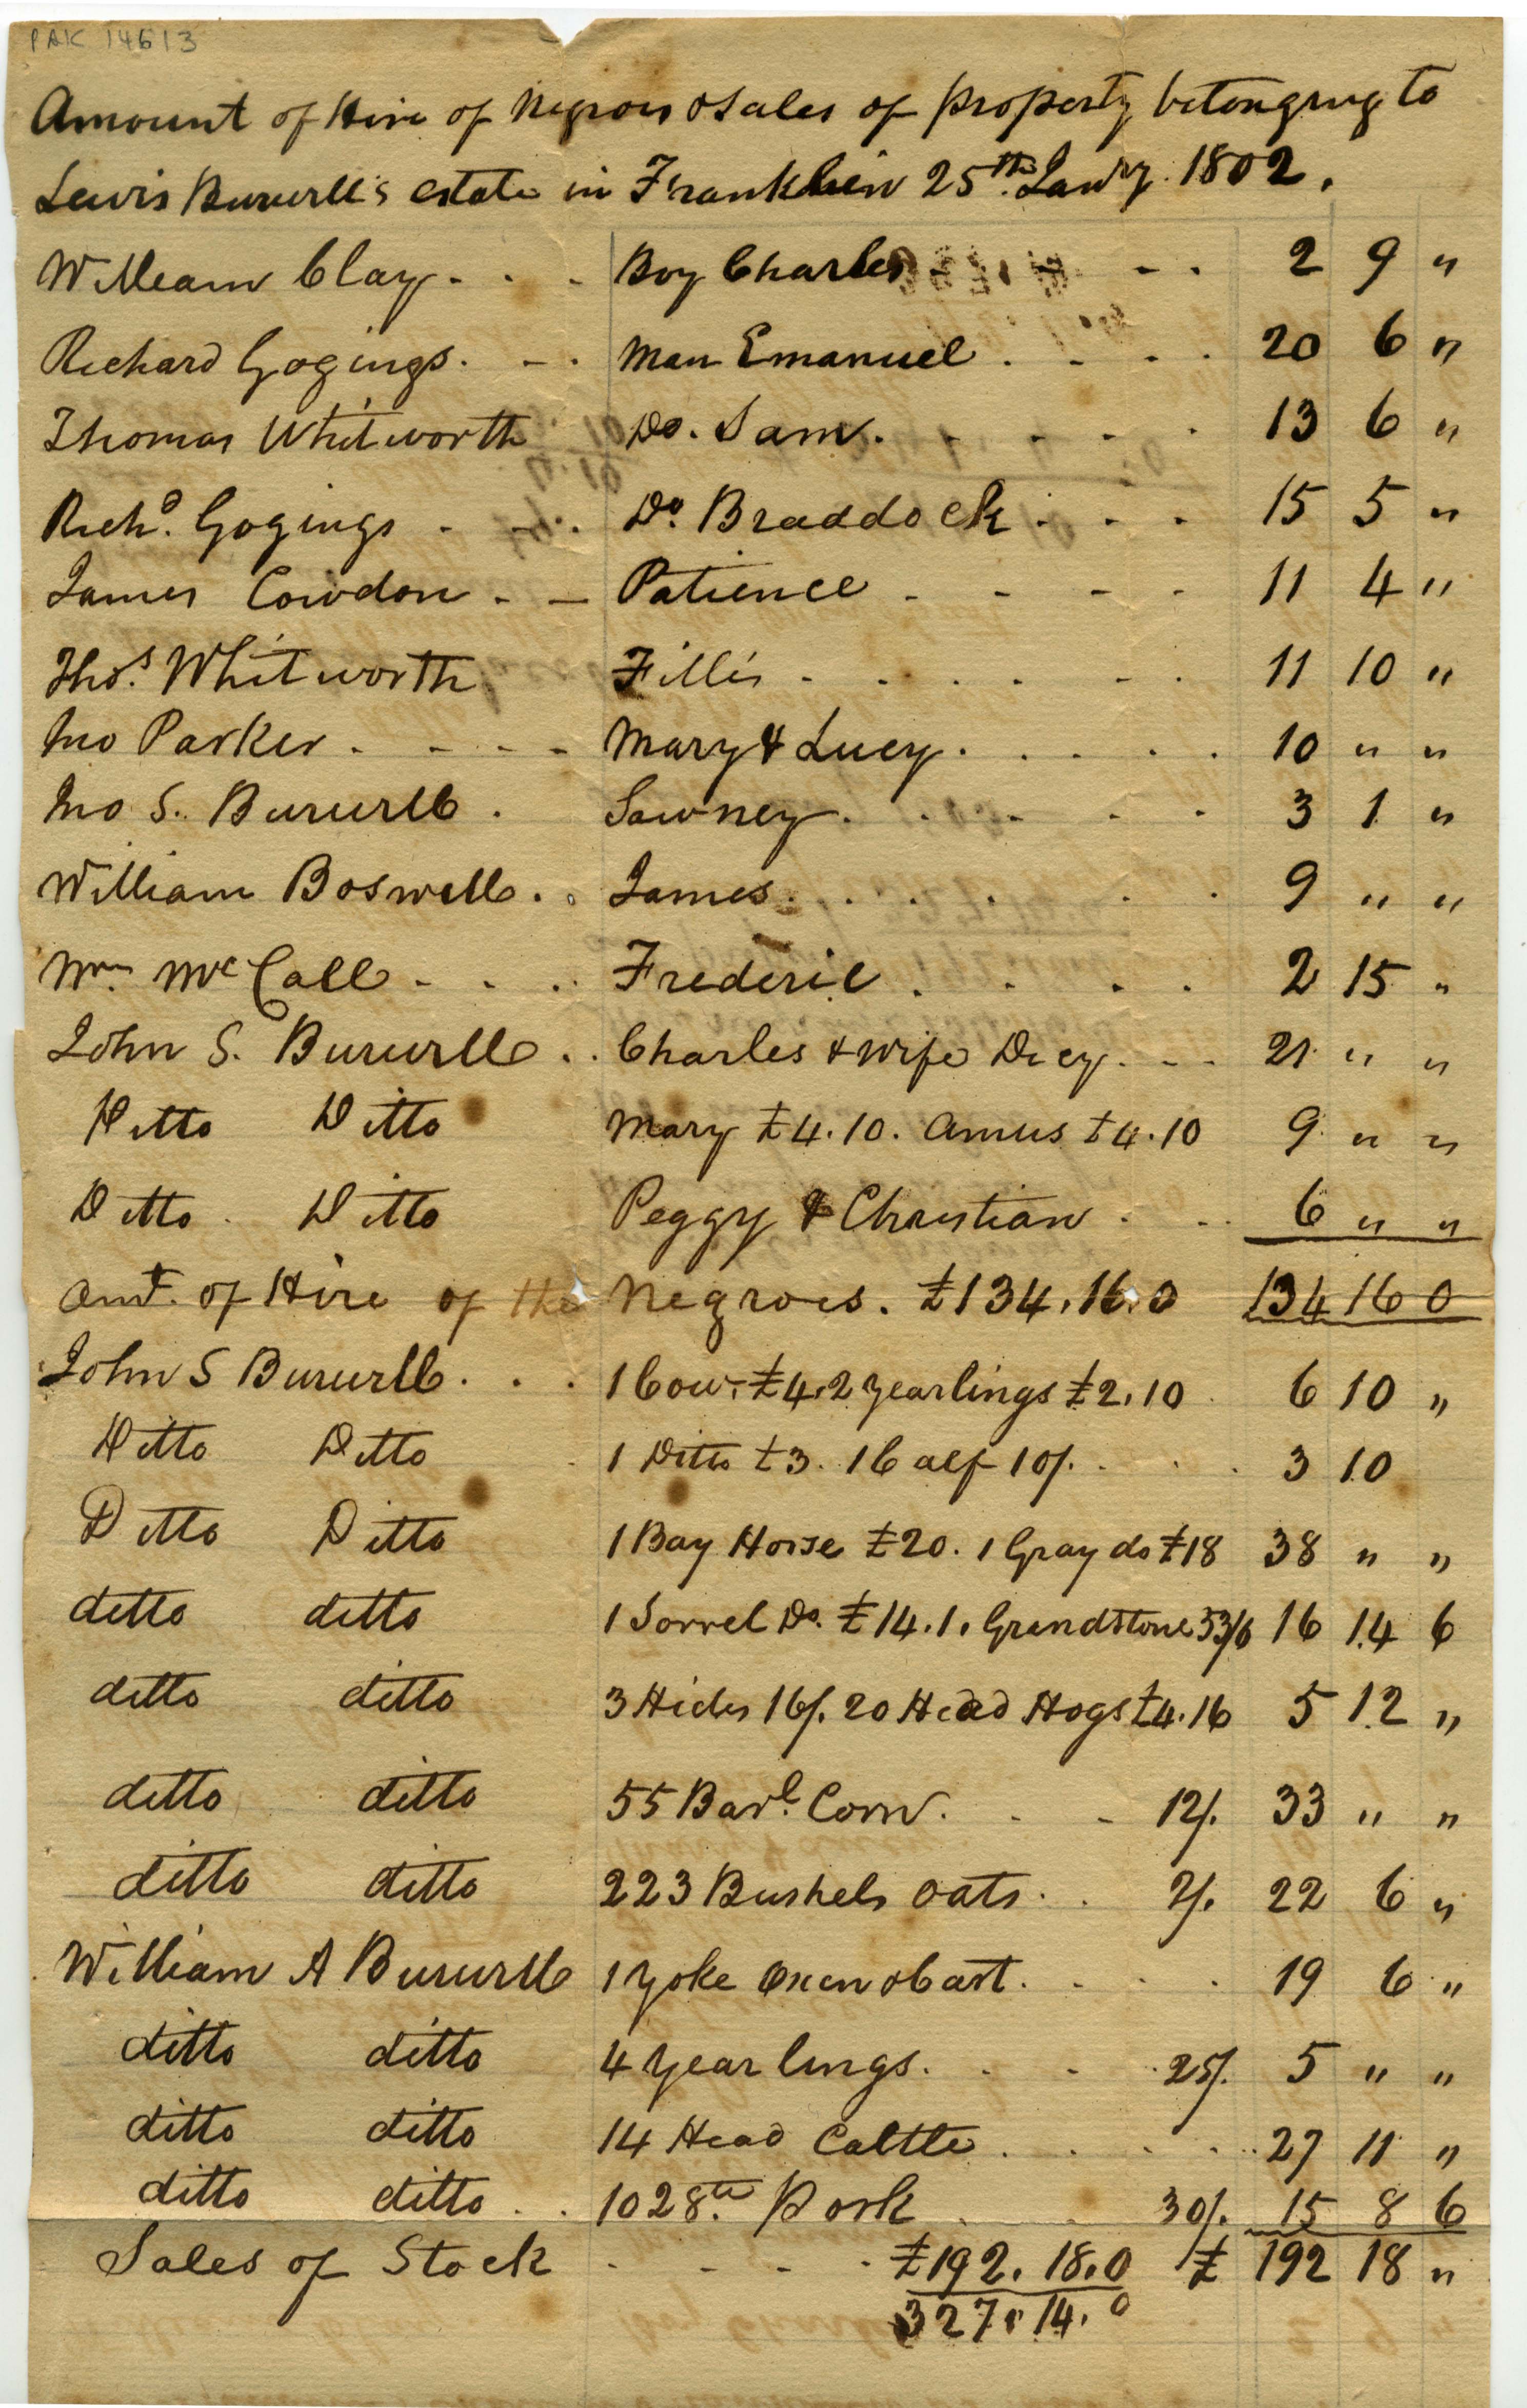 PAK 14613
Amount of Hire of Negroes & Sales of property belonging to
Lewis Burwell's estate in Franklin 25th. Janry. 1802.
William Clay - . - Boy Charles - . 2 9 "
Richard Gogings. - . Man Emanuel . - . . 20 6 "
Thomas Whitworth Do. Sam. - - - . 13 6 "
Richd. Gogings - - . Do. Braddock . - . 15 5 "
James Cowdon - - Patience - - - . 11 4 "
Thos. Whitworth Fillis - . . . - . 11 10 "
Jno Parker . - - - Mary & Lucy . . . . . 10 " "
Jno S. Burwell . Sawney . . - . . 3 1 "
William Boswell . . James . . . . . . 9 " "
Wm. McCall - . . Frederic . . . . 2 15 "
John S. Burwell . . Charles & wife Dicy . - - 21 " "
Ditto Ditto Mary £4.10. Amus £4.10 9 " "
Ditto Ditto Peggy & Christian . . 6 " "
Amt. of Hire of the Negroes. £134.16.0 134 16 0
John S Burwell . . . 1 Cow. £4. 2 yearlings £2.10 6 10 "
Ditto Ditto 1 Ditto £3. 1 Calf 10/. . . . 3 10
Ditto Ditto 1 Bay Horse £20. 1 Gray do £18 38 " "
ditto ditto 1 Sorrel Do. £14. 1. Grandstone 53/6 16 14 6
ditto ditto 3 Hides 16/. 20 Head Hogs £4.16 5 12 "
ditto ditto 55 Barl. Corn. . - 12/. 33 " "
ditto ditto 223 Bushels Oats . . 2/. 22 6 "
William A Burwell 1 yoke Oxen & Cart . . . . 19 6 "
ditto ditto 4 yearlings . . - 25/. 5 " "
ditto ditto 14 Head Cattle . . . . 27 11 "
ditto ditto . . 1028 Pork . . 30/. 15 8 6
Sales of Stock - - - . £192.18.0 £ 192 18 "
327.14.0